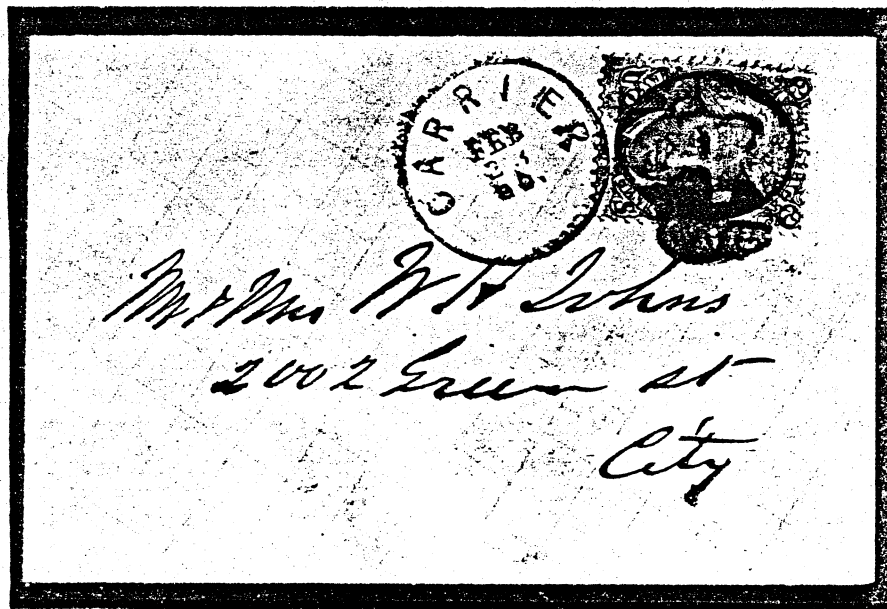 CARRIER
FEB
Mr & Mrs W H Johns
2002 Green st
City